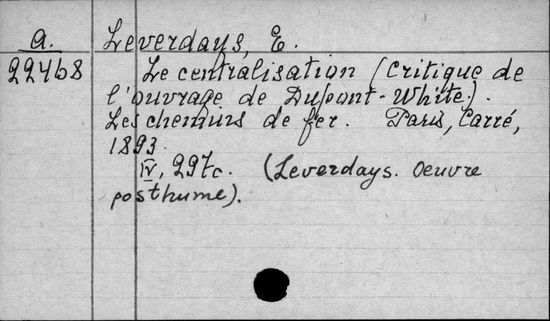 a. Leverdays, E.
22468 Le centralisation (Critique de
l'ouvrage de Dupont-White).
Les chemins de fer. Paris, Carré,
1893.
IV, 297c. (Leverdays. Oeuvre
posthume).